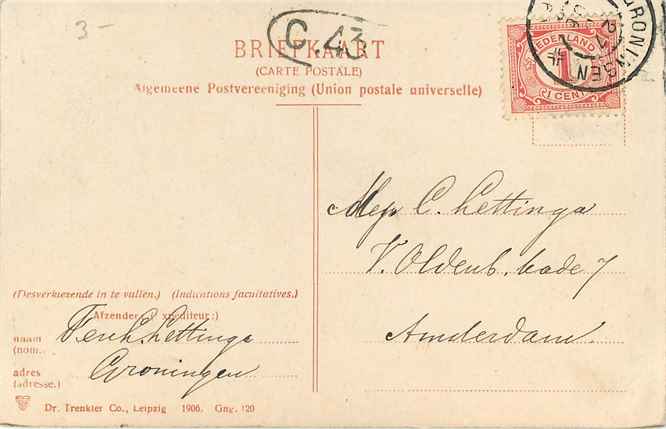 3-
C.43
BRIEFKAART
(CARTE POSTALE)
Algemeene Postvereeniging (Union postale universelle)
GRONINGEN
NEDERLAND
1
CENT
Mej C. Hettinga
V. Oldenb. kade 7
Amsterdam.
(Desverkiezende in te vullen.) (Indications facultatives.)
Afzender (expéditeur:)
naam
(nom..
Hettinga
adres
(adresse.)
Groningen
Dr. Trenkler Co., Leipzig 1906. Gng. 120